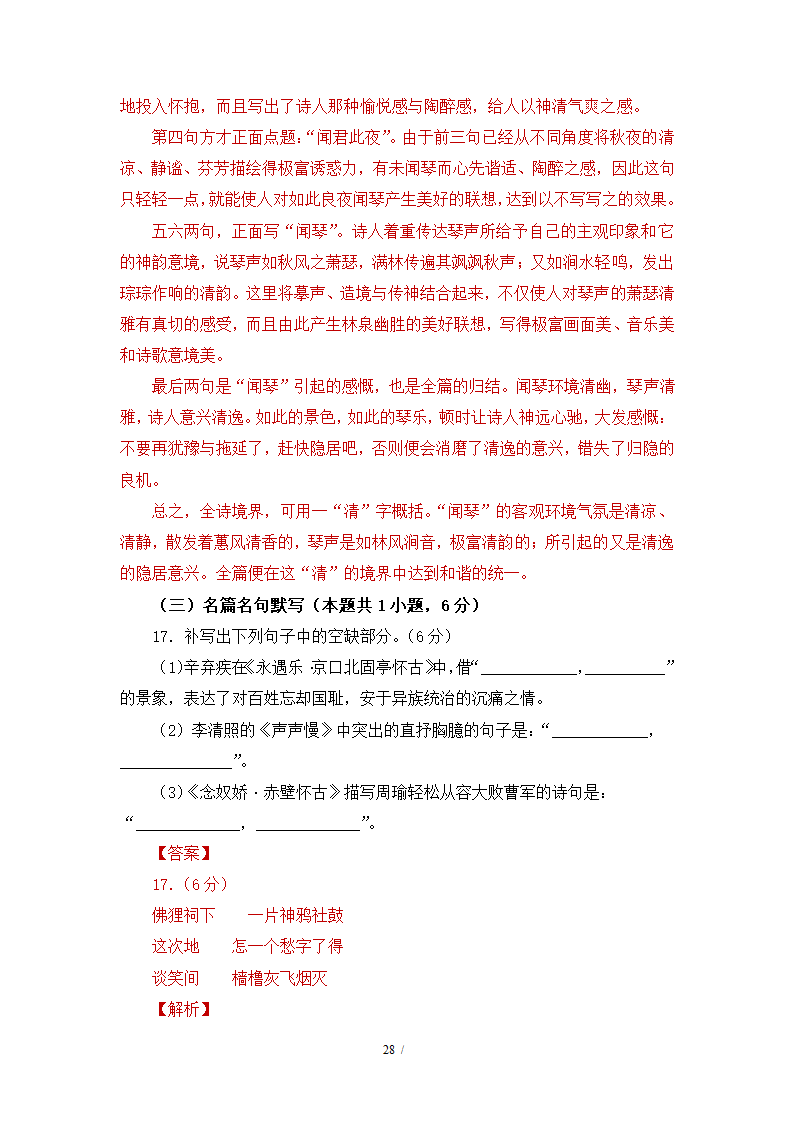 地投入怀抱，而且写出了诗人那种愉悦感与陶醉感，给人以神清气爽之感。
第四句方才正面点题：“闻君此夜”。由于前三句已经从不同角度将秋夜的清
凉、静谧、芬芳描绘得极富诱惑力，有未闻琴而心先谐适、陶醉之感，因此这句
只轻轻一点，就能使人对如此良夜闻琴产生美好的联想，达到以不写写之的效果。
五六两句，正面写“闻琴”。诗人着重传达琴声所给予自己的主观印象和它
的神韵意境，说琴声如秋风之萧瑟，满林传遍其飒飒秋声；又如涧水轻鸣，发出
琮琮作响的清韵。这里将摹声、造境与传神结合起来，不仅使人对琴声的萧瑟清
雅有真切的感受，而且由此产生林泉幽胜的美好联想，写得极富画面美、音乐美
和诗歌意境美。
最后两句是“闻琴”引起的感慨，也是全篇的归结。闻琴环境清幽，琴声清
雅，诗人意兴清逸。如此的景色，如此的琴乐，顿时让诗人神远心驰，大发感慨：
不要再犹豫与拖延了，赶快隐居吧，否则便会消磨了清逸的意兴，错失了归隐的
良机。
总之，全诗境界，可用一“清”字概括。“闻琴”的客观环境气氛是清凉、
清静，散发着蕙风清香的，琴声是如林风涧音，极富清韵的；所引起的又是清逸
的隐居意兴。全篇便在这“清”的境界中达到和谐的统一。
（三）名篇名句默写（本题共1小题，6分）
17. 补写出下列句子中的空缺部分。（6分）
（1）辛弃疾在《永遇乐·京口北固亭怀古》中，借“____________，__________”
的景象，表达了对百姓忘却国耻，安于异族统治的沉痛之情。
（2）李清照的《声声慢》中突出的直抒胸臆的句子是：“____________，
______________”。
（3）《念奴娇·赤壁怀古》描写周瑜轻松从容大败曹军的诗句是：
“_____________，_____________”。
【答案】
17.（6分）
佛狸祠下　　一片神鸦社鼓
这次地　　怎一个愁字了得
谈笑间　　樯橹灰飞烟灭
【解析】
28 /